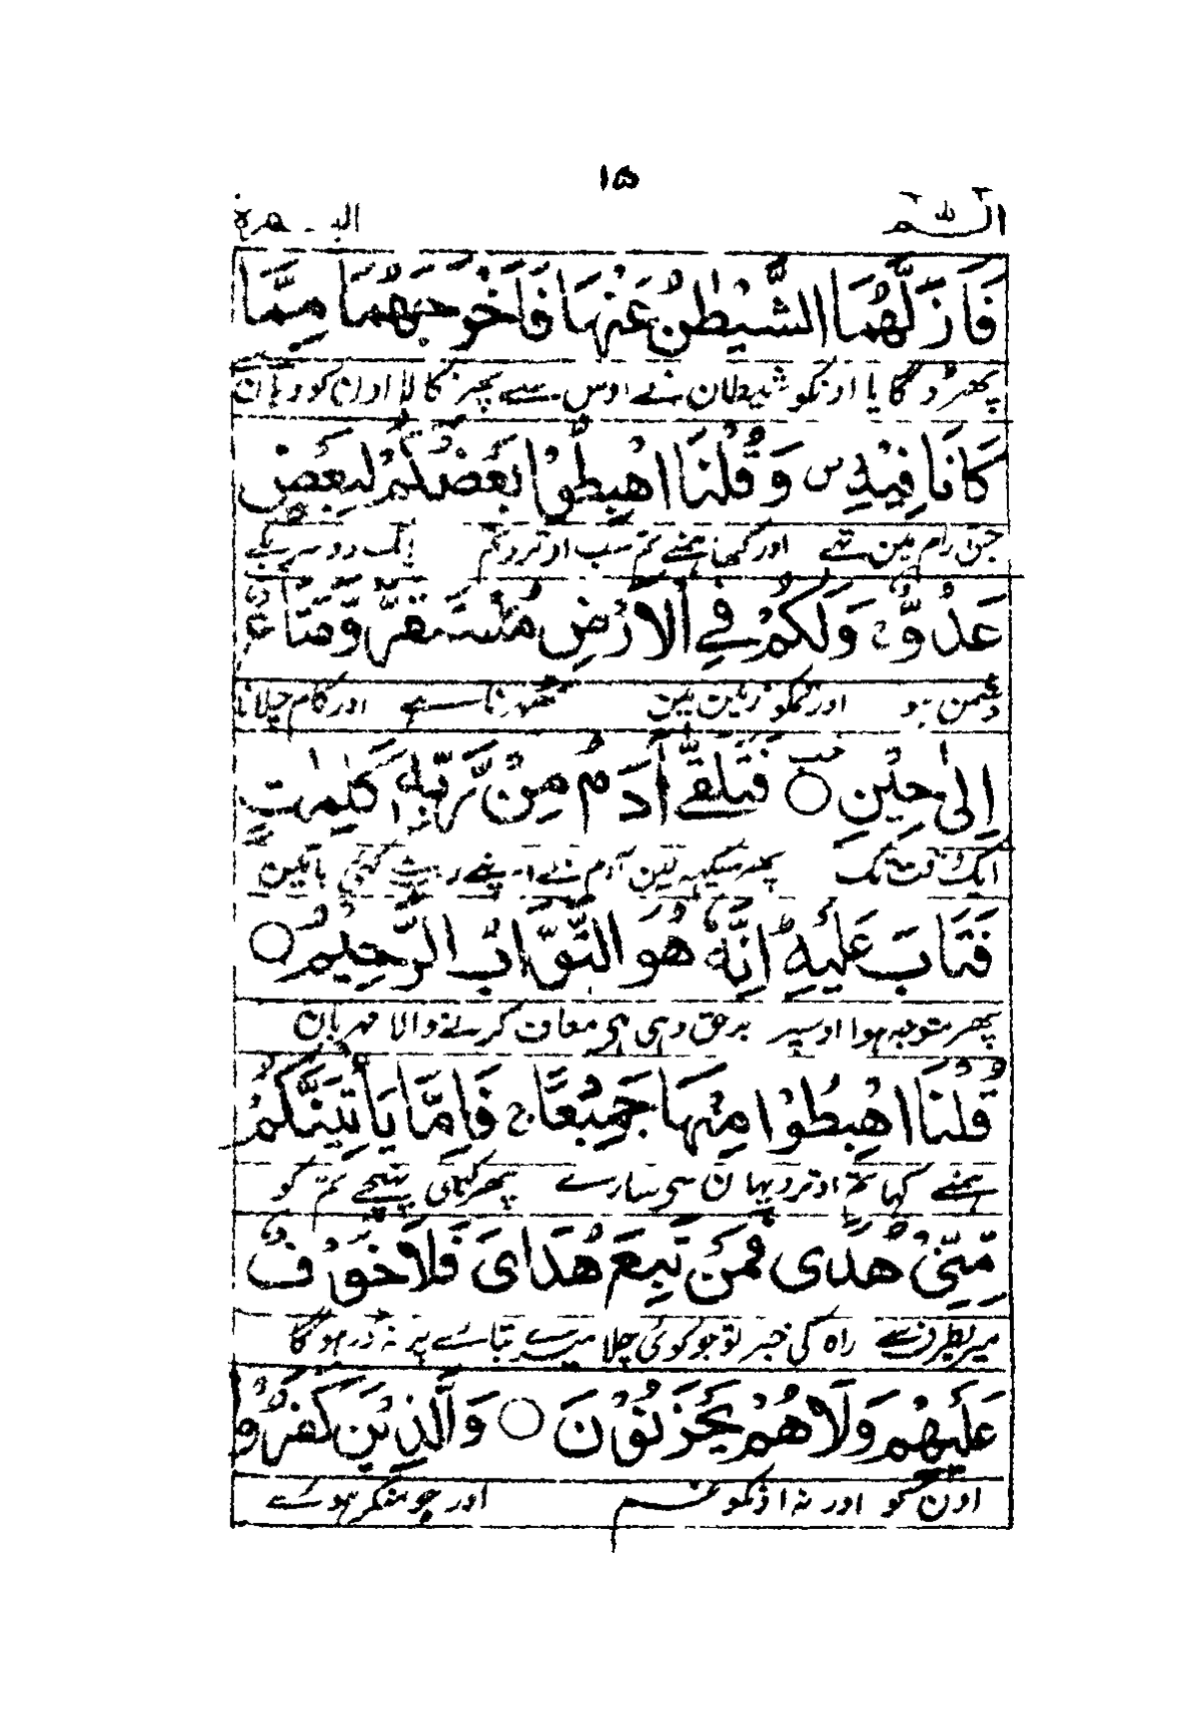 ۱۵
الٓمٓ البقرة
فَاَزَلَّهُمَا الشَّيْطٰنُ عَنْهَا فَاَخْرَجَهُمَا مِمَّا
پھر ڈگایا اونکو شیطان نے اوس سے پھر نکالا اون کو وہان
كَانَا فِيْهِ ۪ وَقُلْنَا اهْبِطُوْا بَعْضُكُمْ لِبَعْضٍ
جس آرام مین تھے اور کہا ہمنے تم سب اوترو تم ایک دوسریکے
عَدُوٌّ ۚ وَلَكُمْ فِى الْاَرْضِ مُسْتَقَرٌّ وَّمَتَاعٌ
دشمن ہو اور تمکو زمین مین ٹھہرنا ہے اور کام چلانا
اِلٰى حِيْنٍ ○ فَتَلَقّٰٓى اٰدَمُ مِنْ رَّبِّهٖ كَلِمٰتٍ
ایک وقت تک پھر سیکھہ لین آدم نے اپنے رب سے کئی باتین
فَتَابَ عَلَيْهِ ؕ اِنَّهٗ هُوَ التَّوَّابُ الرَّحِيْمُ ○
پھر متوجہ ہوا اوسپر برحق وہی ہی معاف کرنے والا مہربان
قُلْنَا اهْبِطُوْا مِنْهَا جَمِيْعًا ۚ فَاِمَّا يَاْتِيَنَّكُمْ
ہمنے کہا تم اوترو یہان سی سارے پھر کبھی پہنچے تم کو
مِّنِّىْ هُدًى فَمَنْ تَبِعَ هُدَاىَ فَلَا خَوْفٌ
میریطرفسے راہ کی خبر تو جو کوئی چلا میرے بتائے پر نہ ڈر ہوگا
عَلَيْهِمْ وَلَا هُمْ يَحْزَنُوْنَ ○ وَالَّذِيْنَ كَفَرُوْا
اون کو اور نہ اونکو غم اور جو منکر ہوئے